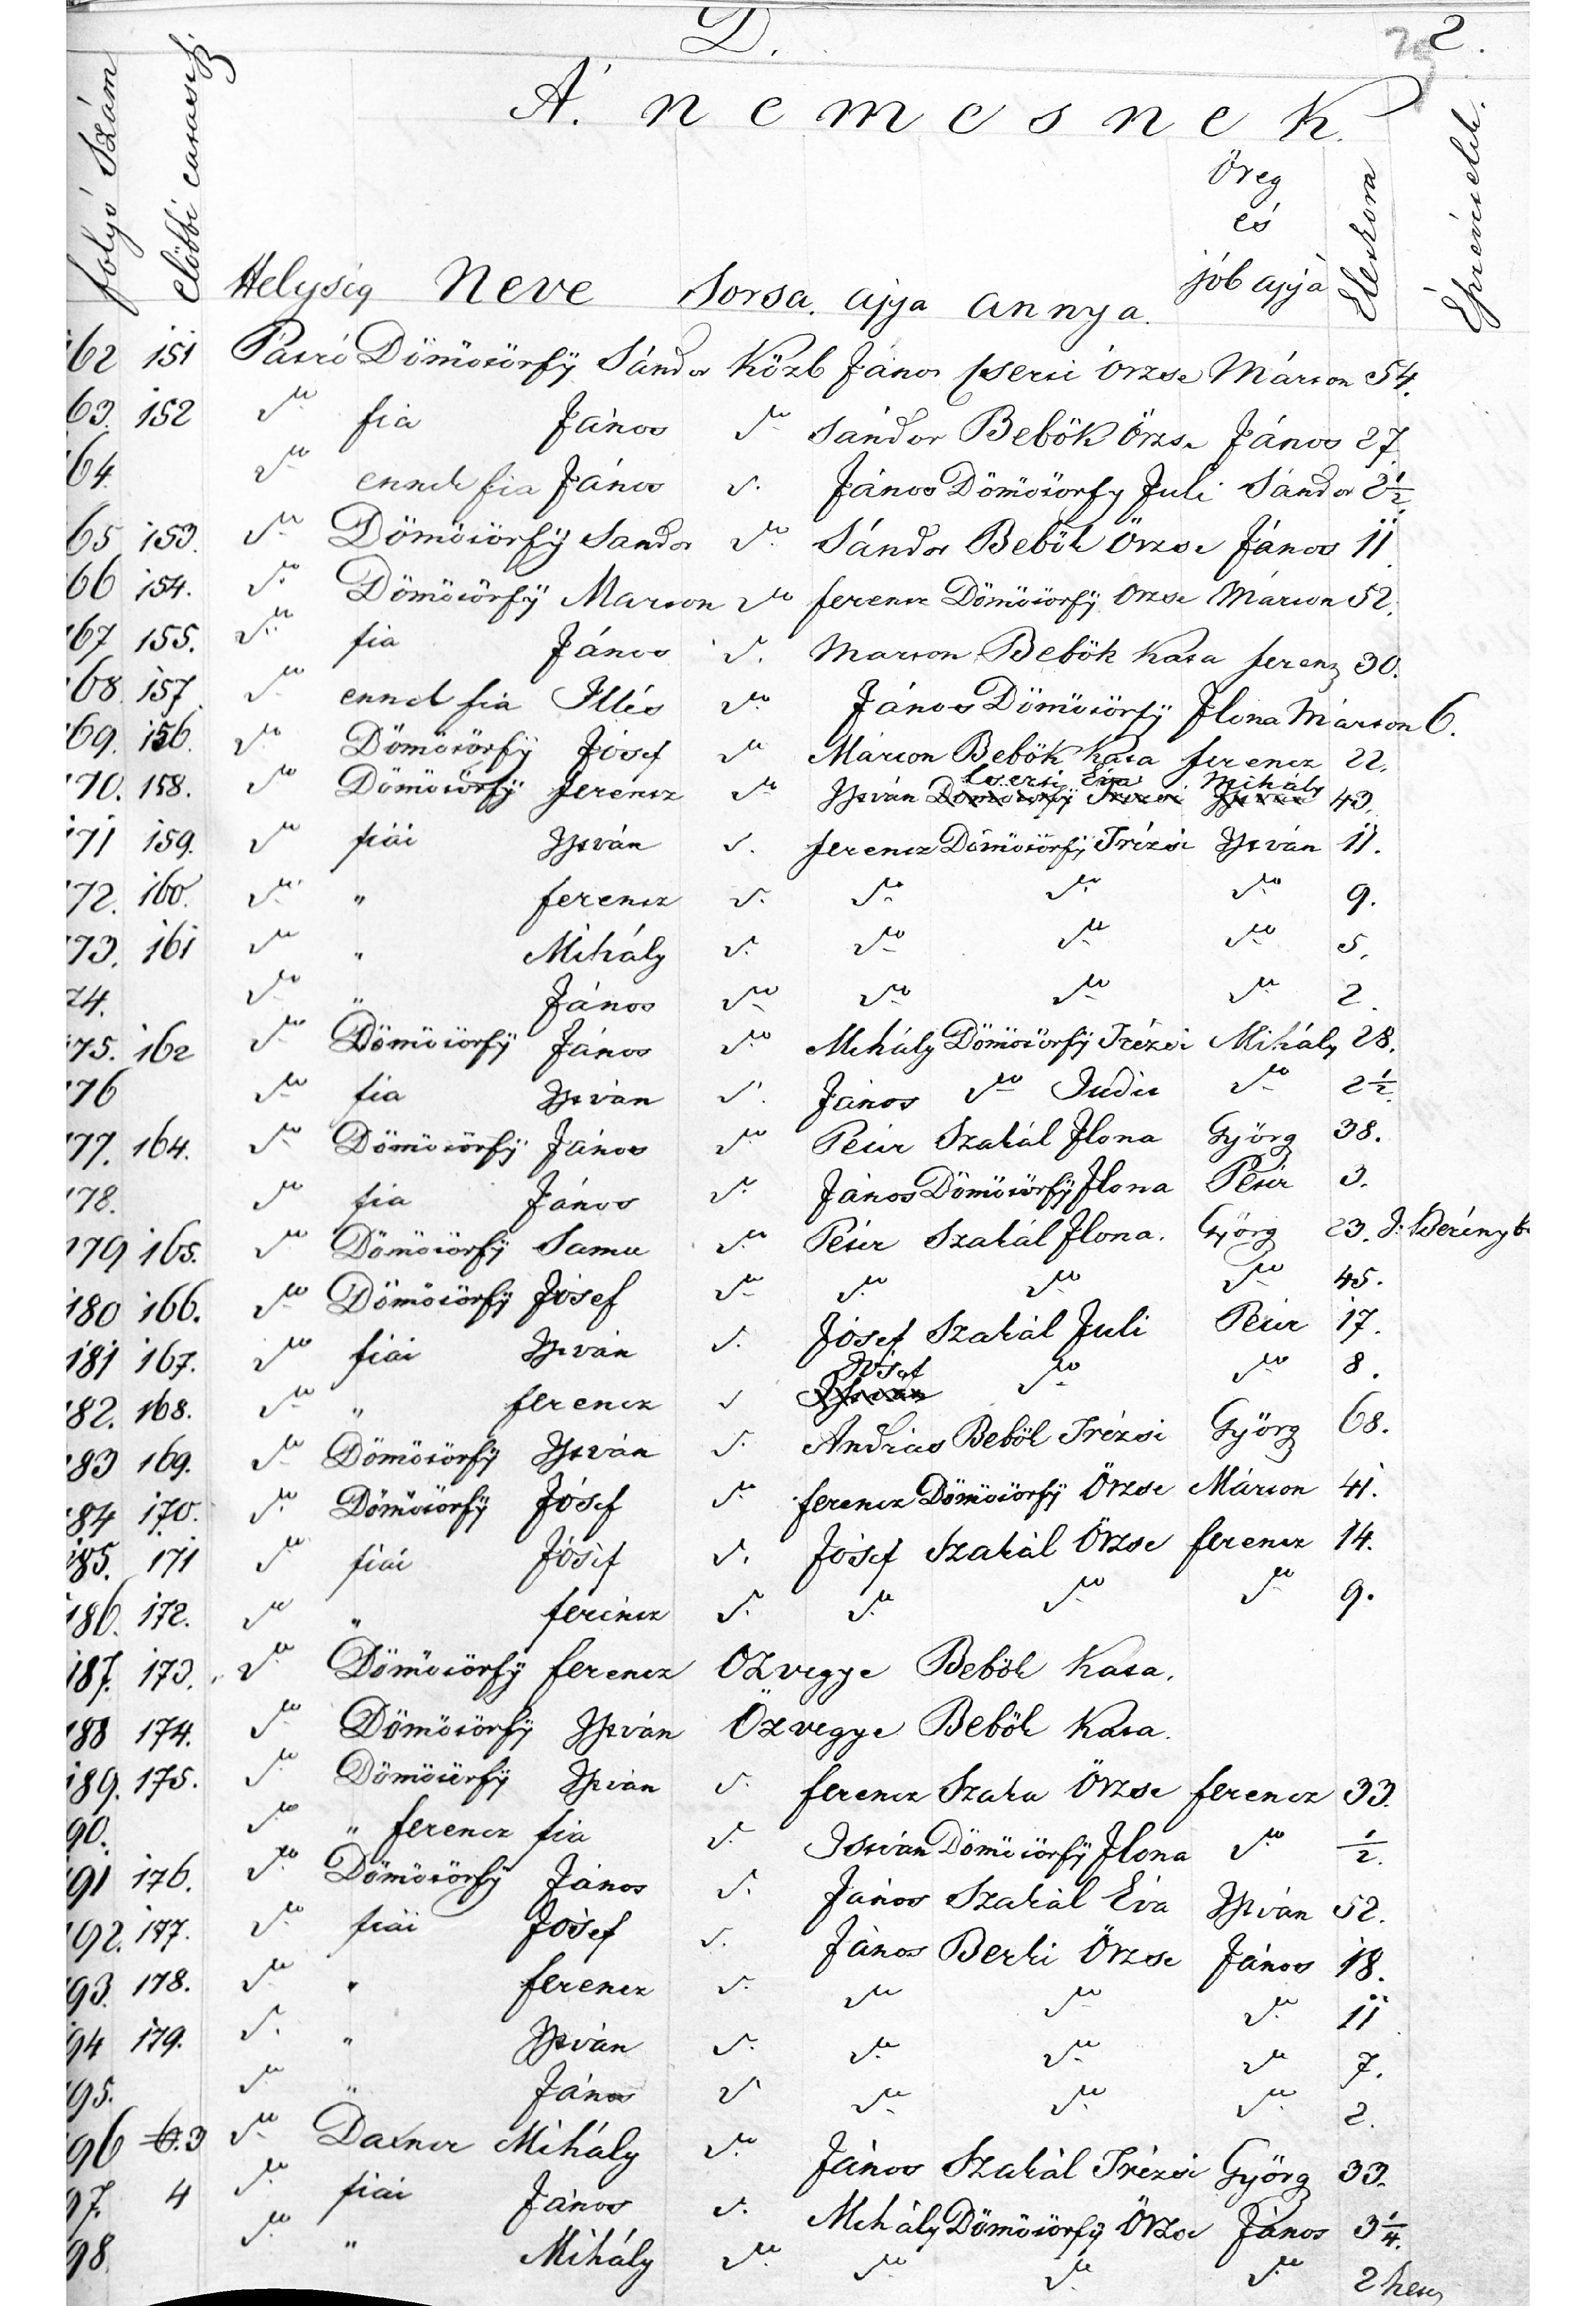 D. 2.
A' nemesnek
folyó Szám
előbbi
Helység Neve Sorsa. apja annya.
Öreg
és
jób apjá
Életkora
Észrevételek.
162 151 Pásztó Dömötörfÿ Sándor Közb János Cserti Örzse Márton 54.
163. 152 do fia János do Sándor Bebök Örzse János 27
164. do ennek fia János d. János Dömötörfy Juli Sándor 2 1/2.
165 153. do Dömötörfÿ Sandor do Sándor Bebök Örzse János 11
166 154. do Dömötörfÿ Marton do ferencz Dömötörfÿ Örzse Márton 52.
167 155. do fia János d. Marton Bebök Kata ferenz 30.
168. 157. do ennek fia Illés do János Dömötörfÿ Ilona Márton 6.
169. 156. do Dömötörfÿ Jósef do Márton Bebök Kata ferencz 22.
170. 158. do Dömötörfÿ ferencz do István Cserti Éva Mihály 43.
171 159. do fiái István d. ferencz Dömötörfÿ Trézsi István 11.
172. 160. do " ferencz d. do do do 9.
173. 161 do " Mihály d. do do do 5.
174. do " János do do do do 2.
175. 162 do Dömötörfÿ János do Mihály Dömötörfÿ Trézsi Mihály 28.
176 do fia István d. János do Judit do 2 1/2.
177. 164. do Dömötörfÿ János do Péter Szakál Ilona Györg 38.
178. do fia János do János Dömötörfÿ Ilona Péter 3.
179 165. do Dömötörfÿ Samu do Péter Szakál Ilona. Györg 23.
180 166. do Dömötörfÿ Jósef do do do do 45.
181 167. do fiái István d. Jósef Szakál Juli Péter 17.
182. 168. do " ferencz d Jósef do do 8.
183 169. do Dömötörfÿ István d. András Bebök Trézsi Györg 68.
184 170. do Dömötörfÿ Jósef do ferencz Dömötörfÿ Örzse Márton 41.
185. 171 do fiái Jósef d. Jósef Szakál Örzse ferencz 14.
186. 172. do " ferencz d. do do do 9.
187. 173. do Dömötörfÿ ferencz Özvegye Bebök Kata.
188 174. do Dömötörfÿ István Özvegye Bebök Kata.
189. 175. do Dömötörfÿ István d. ferencz Örzse ferencz 33.
190. do " ferencz fia d. István Dömötörfÿ Ilona do 1/2.
191 176. do Dömötörfÿ János d. János Szakál Éva István 52.
192. 177. do fiái Jósef d. János Berki Örzse János 18.
193. 178. do " ferencz d. do do do 11
194 179. d. " István d. do do do 7.
195. do " János d do do do 2.
196 3 do Mihály do János Szakál Trézsi Györg 33.
197. 4 do fiái János d. Mihály Dömötörfÿ Örzse János 3 1/4.
198. do " Mihály do do do do 2